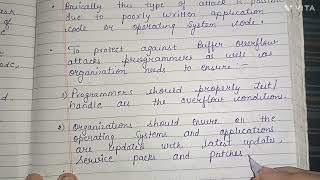 Basically this type of attack is possible
due to poorly written application
code or operating system code.
To protect against Buffer overflow
attacks programmers as well as
organisation needs to ensure -
1) Programmers should properly Test/
handle all the overflow conditions.
2) Organizations should ensure all the
operating systems and applications
are updated with latest updates,
service packs and patches.
VITA